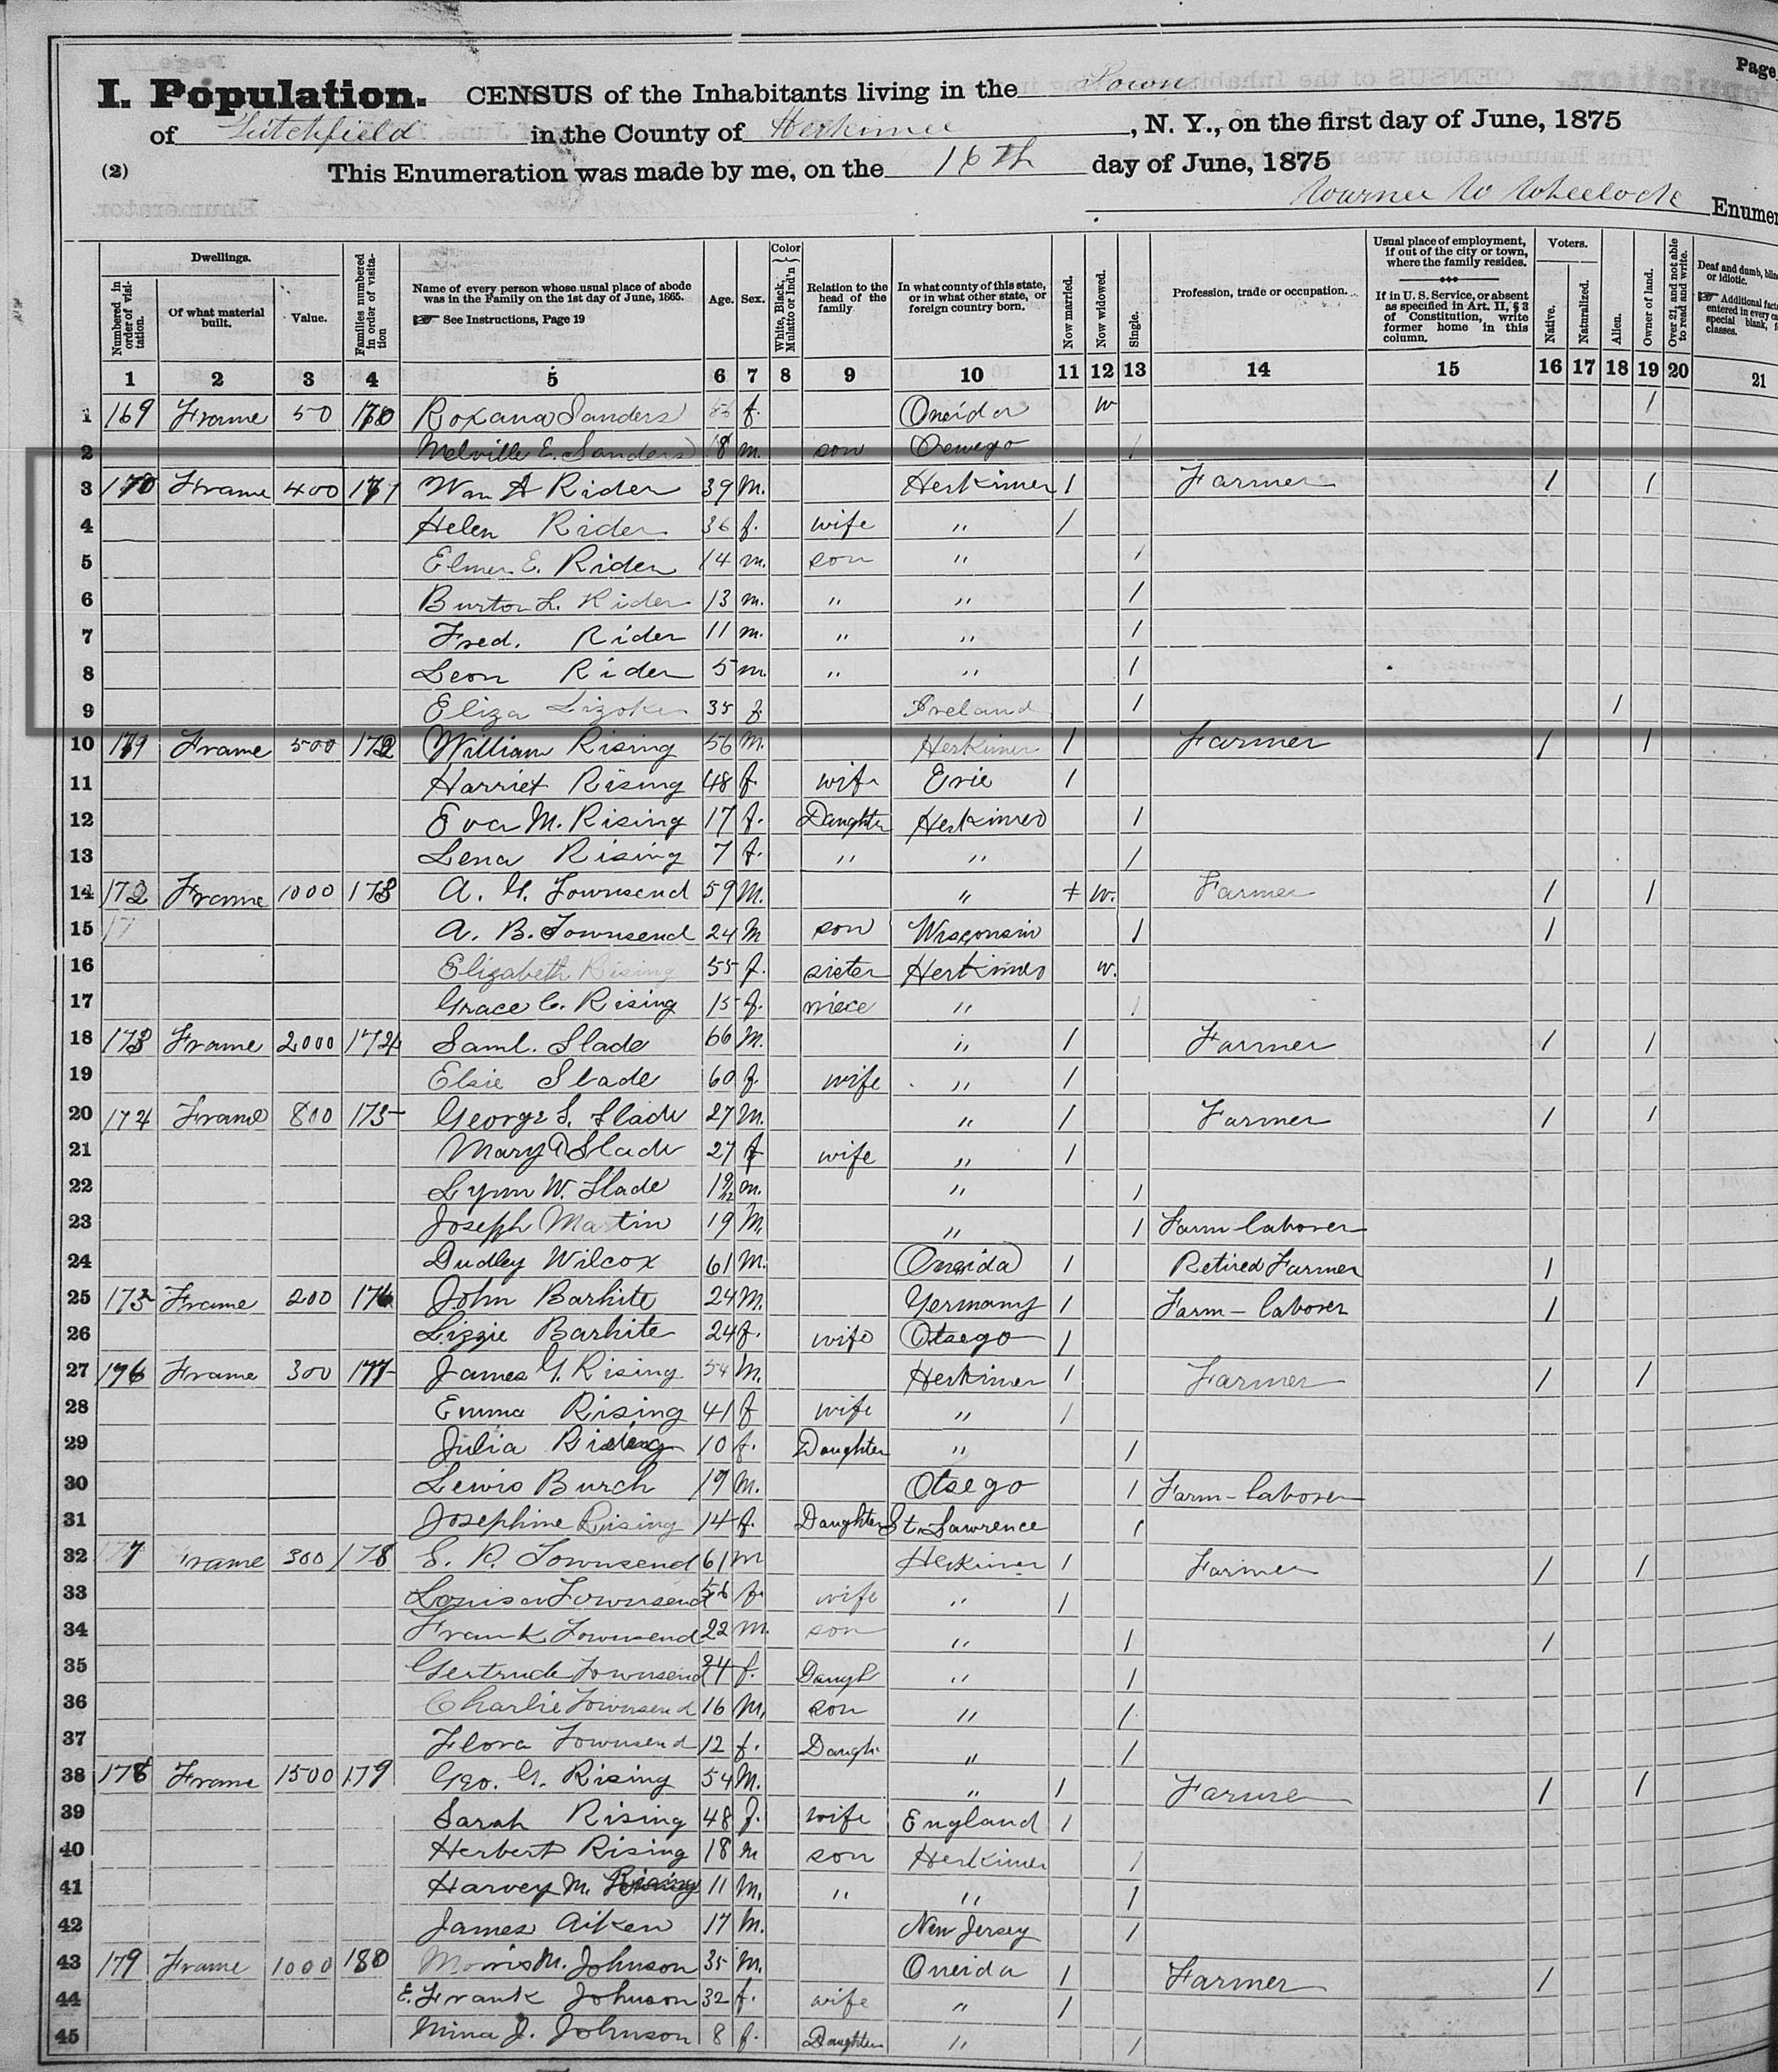 Page
I. Population. CENSUS of the Inhabitants living in the Town
of Litchfield in the County of Herkimer, N. Y., on the first day of June, 1875
(2) This Enumeration was made by me, on the 16th day of June, 1875
W Wheelock Enumer
Dwellings. Numbered in order of visitation. Of what material built. Value. Families numbered in order of visitation Name of every person whose usual place of abode was in the Family on the 1st day of June, 1865. See Instructions, Page 19 Age. Sex. Color White, Black, Mulatto or Ind'n Relation to the head of the family In what county of this state, or in what other state, or foreign country born. Now married. Now widowed. Single. Profession, trade or occupation. Usual place of employment, if out of the city or town, where the family resides. If in U. S. Service, or absent as specified in Art. II, § 3 of Constitution, write former home in this column. Voters. Native. Naturalized. Alien. Owner of land. Over 21, and not able to read and write. Deaf and dumb, blin or idiotic. Additional fact entered in every ca special blank, classes.
1 2 3 4 5 6 7 8 9 10 11 12 13 14 15 16 17 18 19 20 21
1 169 Frame 50 170 Roxana Sanders f. Oneida w 1
2 Melville E. Sanders 18 m. son Oswego 1
3 170 Frame 400 171 Wm A Rider 39 M. Herkimer 1 Farmer 1 1
4 Helen Rider 36 f. wife " 1
5 Elmer E. Rider 14 m. son " 1
6 Burton L. Rider 13 m. " " 1
7 Fred. Rider 11 m. " " 1
8 Leon Rider 5 m. " " 1
9 Eliza 35 f. Ireland 1 1
10 171 Frame 500 172 William Rising 56 M. Herkimer 1 Farmer 1 1
11 Harriet Rising 48 f. wife Erie 1
12 Eva M. Rising 17 f. Daughter Herkimer 1
13 Lena Rising 7 f. " " 1
14 172 Frame 1000 173 A. G. Townsend 59 M. " w. Farmer 1 1
15 17 A. B. Townsend 24 M son Wisconsin 1 1
16 Elizabeth Rising 55 f. sister Herkimer w.
17 Grace C. Rising 15 f. niece " 1
18 173 Frame 2000 174 Saml. Slade 66 M. " 1 Farmer 1 1
19 Elsie Slade 60 f. wife " 1
20 174 Frame 800 175 George S. Slade 27 M. " 1 Farmer 1 1
21 Mary D Slade 27 f wife " 1
22 Lynn W. Slade 1 9/12 m. " 1
23 Joseph Martin 19 M. " 1 Farm laborer
24 Dudley Wilcox 61 M. Oneida 1 Retired Farmer 1
25 175 Frame 200 176 John Barhite 24 M. Germany 1 Farm - laborer 1
26 Lizzie Barhite 24 f. wife Otsego 1
27 176 Frame 300 177 James G. Rising 54 M. Herkimer 1 Farmer 1 1
28 Emma Rising 41 f wife " 1
29 Julia Rising 10 f. Daughter " 1
30 Lewis Burch 19 M. Otsego 1 Farm - laborer
31 Josephine Rising 14 f. Daughter St. Lawrence 1
32 177 Frame 300 178 S. P. Townsend 61 m Herkimer 1 Farmer 1 1
33 Louisa Townsend 56 f. wife " 1
34 Frank Townsend 22 m. son " 1 1
35 Gertrude Townsend 24 f. Daugh " 1
36 Charlie Townsend 16 M. son " 1
37 Flora Townsend 12 f. Daugh. " 1
38 178 Frame 1500 179 Geo. G. Rising 54 M. " 1 Farmer 1 1
39 Sarah Rising 48 f. wife England 1
40 Herbert Rising 18 m son Herkimer 1
41 Harvey M. Rising 11 M. " " 1
42 James Aiken 17 M. New Jersey 1
43 179 Frame 1000 180 Morris M. Johnson 35 M. Oneida 1 Farmer 1
44 E. Frank Johnson 32 f. wife " 1
45 Mina J. Johnson 8 f. Daughter " 1